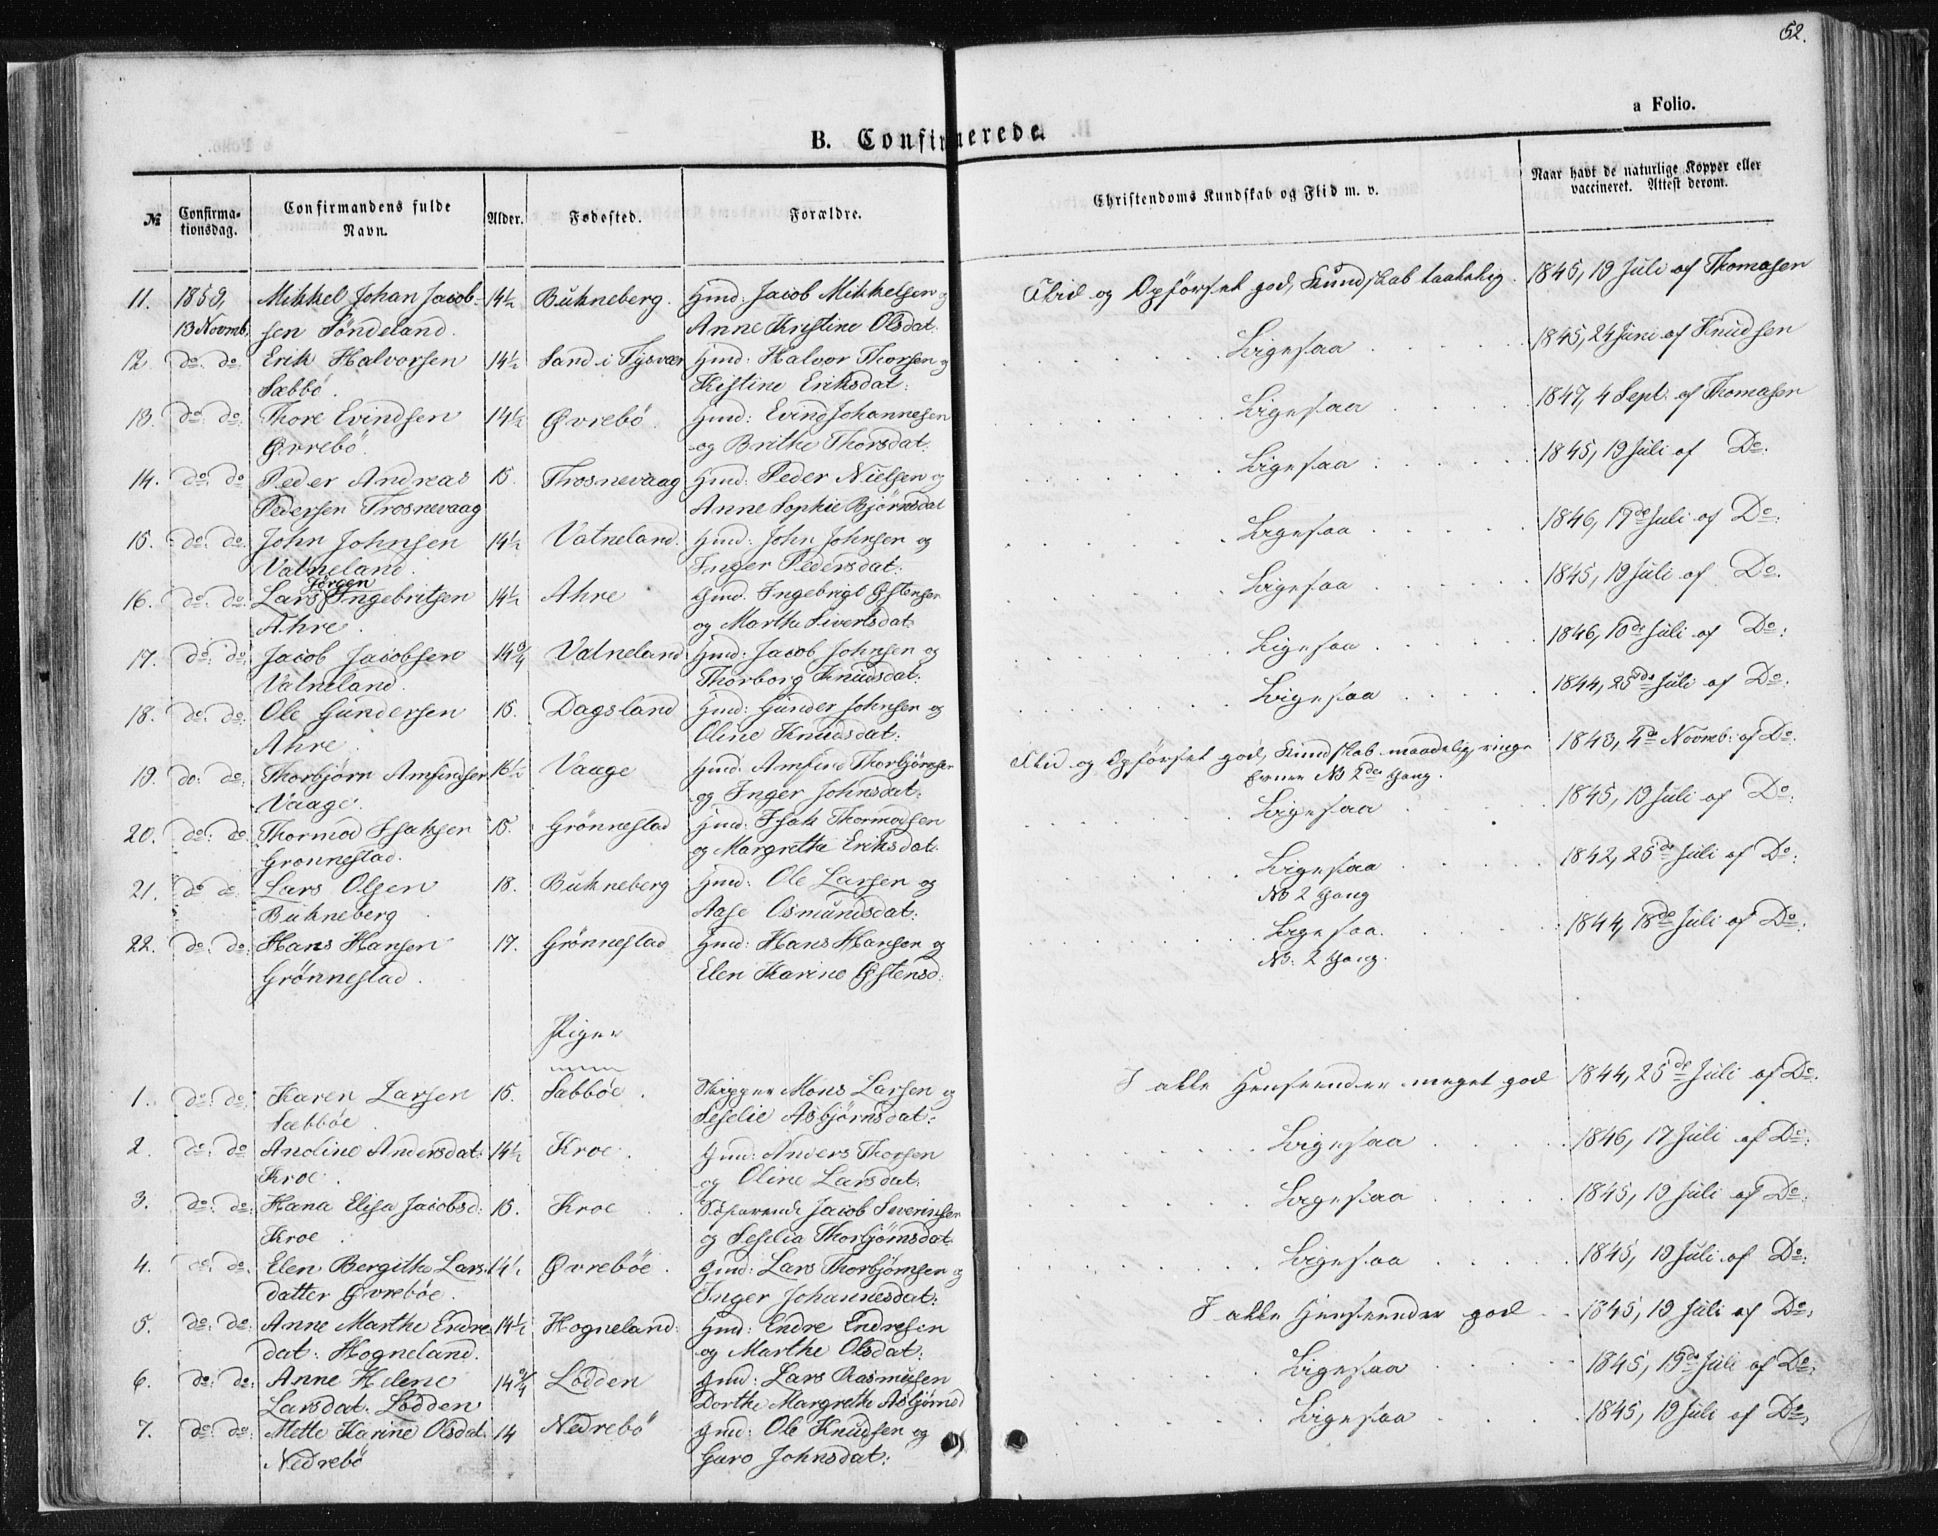 62.
a Folio.
B. Confirmerede.
№
Confirma-
tionsdag.
Confirmandens fulde
Navn.
Alder.
Fødested.
Forældre.
Christendoms Kundskab og Flid m. v.
Naar havt de naturlige Kopper eller
vaccineret. Attest derom.
11. 1859, Mikkel Johan Jacob- 14½ Bukneberg. Gmd: Jacob Mikkelsen og Flid og Opførsel god, Kundskab taalelig. 1845, 19 Juli af Thomasen
13 Novmb. sen Søndeland. Anne Kristine Olsdat.
12. do. do: Erik Halvorsen 14½ Sand i Tysvær Gmd: Halvor Thorsen og Ligesaa 1845, 24 Juni af Knudsen
Sæbbø. Kistine Eriksdat:
13. do: do: Thore Evindsen 14½ Øvrebö. Gmd: Evind Johannesen Ligesaa 1847, 4 Sept: af Thomasen
Øvrebö. og Brithe Thorsdat:
14. do: do Peder Andreas 15. Trosnevaag Gmd: Peder Nielsen og Ligesaa 1845, 19 Juli af Do.
Pedersen Trosnevaag Anne Sophie Bjørnsdat
15. do: do: John Johnsen 14½ Vatneland. Gmd: John Johnsen og Ligesaa 1846, 17de Juli af Do:
Vatneland. Inger Pedersdat:
Jörgen
16. do: do: Lars Ingebritsen 14½ Ahre Gmd. Ingebrigt Østensen Ligesaa 1845, 19 Juli af Do.
Ahre. og Marthe Sivertsdat.
17. do: do: Jacob Jacobsen 14¾ Vatneland Gmd: Jacob Johnsen og Ligesaa 1846, 10de Juli af Do:
Vatneland. Thorborg Knudsdat:
18. do: do: Ole Gundersen 15. Dagsland Gmd: Gunder Johnsen og Ligesaa 1844, 25de Juli af Do.
Ahre. Oline Knudsdat:
19. do: do: Thorbjörn Amfindsen 16½ Vaage Gmd: Amfind Thorbjørnsen Flid og Opførsel god, Kundskab maadelig, ringe 1843, 4de Novmb: af Do.
Vaage. og Inger Johnsdat: Evner NB 2den Gang.
20. do: do: Thormod Isaksen 15. Grønnestad Gmd: Isak Thormodsen Ligesaa 1845, 19 Juli af Do:
Grønnestad. og Margrethe Eriksdat.
21. do do: Lars Olsen 18. Bukneberg Gmd: Ole Larsen og Ligesaa 1842, 25de Juli af Do:
Bukneberg Aase Osmundsdat: NB 2 Gang
22. do: do: Hans Hansen 17. Grönnestad Gmd: Hans Hansen og Ligesaa. 1844, 18de Juli af Do:
Grönnestad. Elen Karine Østensd: NB. 2 Gang.
Piger
1. do: do: Karen Larsen 15. Sæbbøe. Skipper Mons Larsen og I alle Henseender meget god 1844, 25de Juli af Do.
Sæbbøe. Seselie Asbjørnsdat:
2. do: do: Anoline Andersdat: 14½ Kroe. Gmd: Anders Thorsen Ligesaa 1846, 17 Juli af Do:
Kroe. og Oline Larsdat.
3. do: do: Hana Elisa Jacobsd: 15. Kroe. Jacob Severinsen Ligesaa 1845, 19 Juli af Do:
Kroe. og Seselia Thorbjørnsdat.
4. do: do: Elen Bergithe Lars- 14½ Øvrebøe. Gmd: Lars Thorbjørnsen og Ligesaa 1845, 19 Juli af Do:
datter Øvrebøe. Inger Johannesdat:
5. do: do: Anne Marthe Endre 14½ Hogneland: Gmd: Endre Endresen I alle Henseender god 1845, 19 Juli af Do:
dat: Hogneland. og Marthe Olsdat:
6. do: do: Anne Helene 14¾ Lodden Gmd: Lars Rasmusen Ligesaa 1845, 19de Juli af Do:
Larsdat. Lodden Dorthe Margrethe Asbjørnsd
7. do: do: Mette Karine Olsdat. 14 Nedrebö Gmd: Ole Knudsen og Ligesaa 1845, 19 Juli af Do,
Nedrebö Guro Johnsdat: